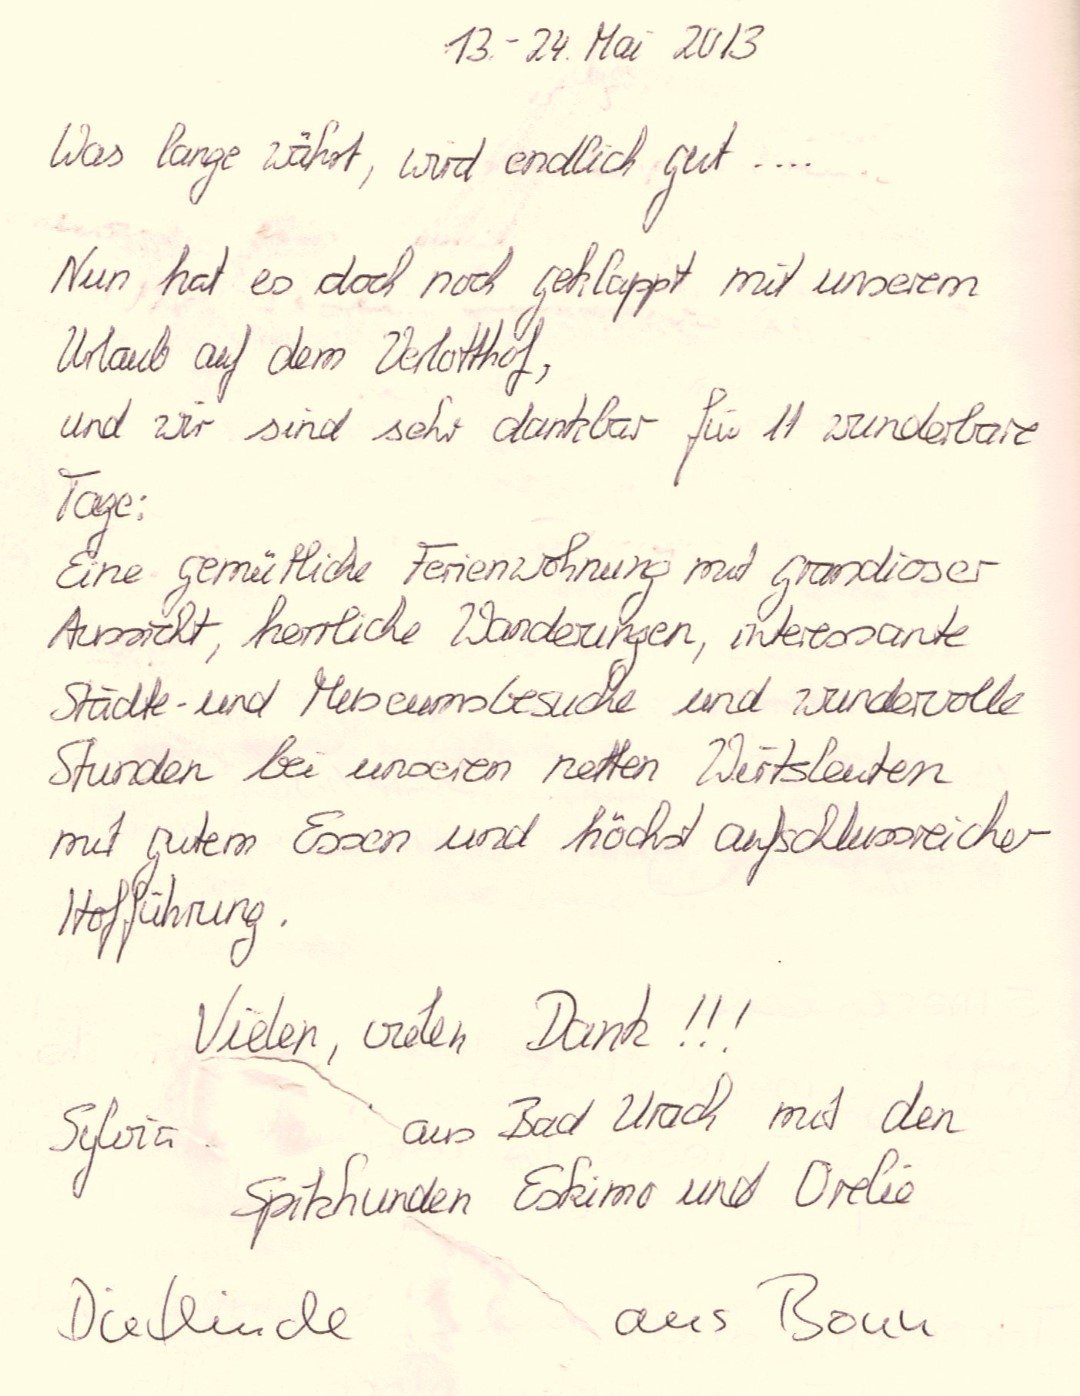 13.-24. Mai 2013
Was lange währt, wird endlich gut ....
Nun hat es doch noch geklappt mit unserem
Urlaub auf dem Verlotthof,
und wir sind sehr dankbar für 11 wunderbare
Tage:
Eine gemütliche Ferienwohnung mit grandioser
Aussicht, herrliche Wanderungen, interessante
Städte- und Museumsbesuche und wundervolle
Stunden bei unseren netten Wirtsleuten
mit gutem Essen und höchst aufschlussreicher
Hofführung.
Vielen, vielen Dank !!!
Sylvia aus Bad Urach mit den
Spitzhunden Eskimo und Orelie
Dietlinde aus Bonn